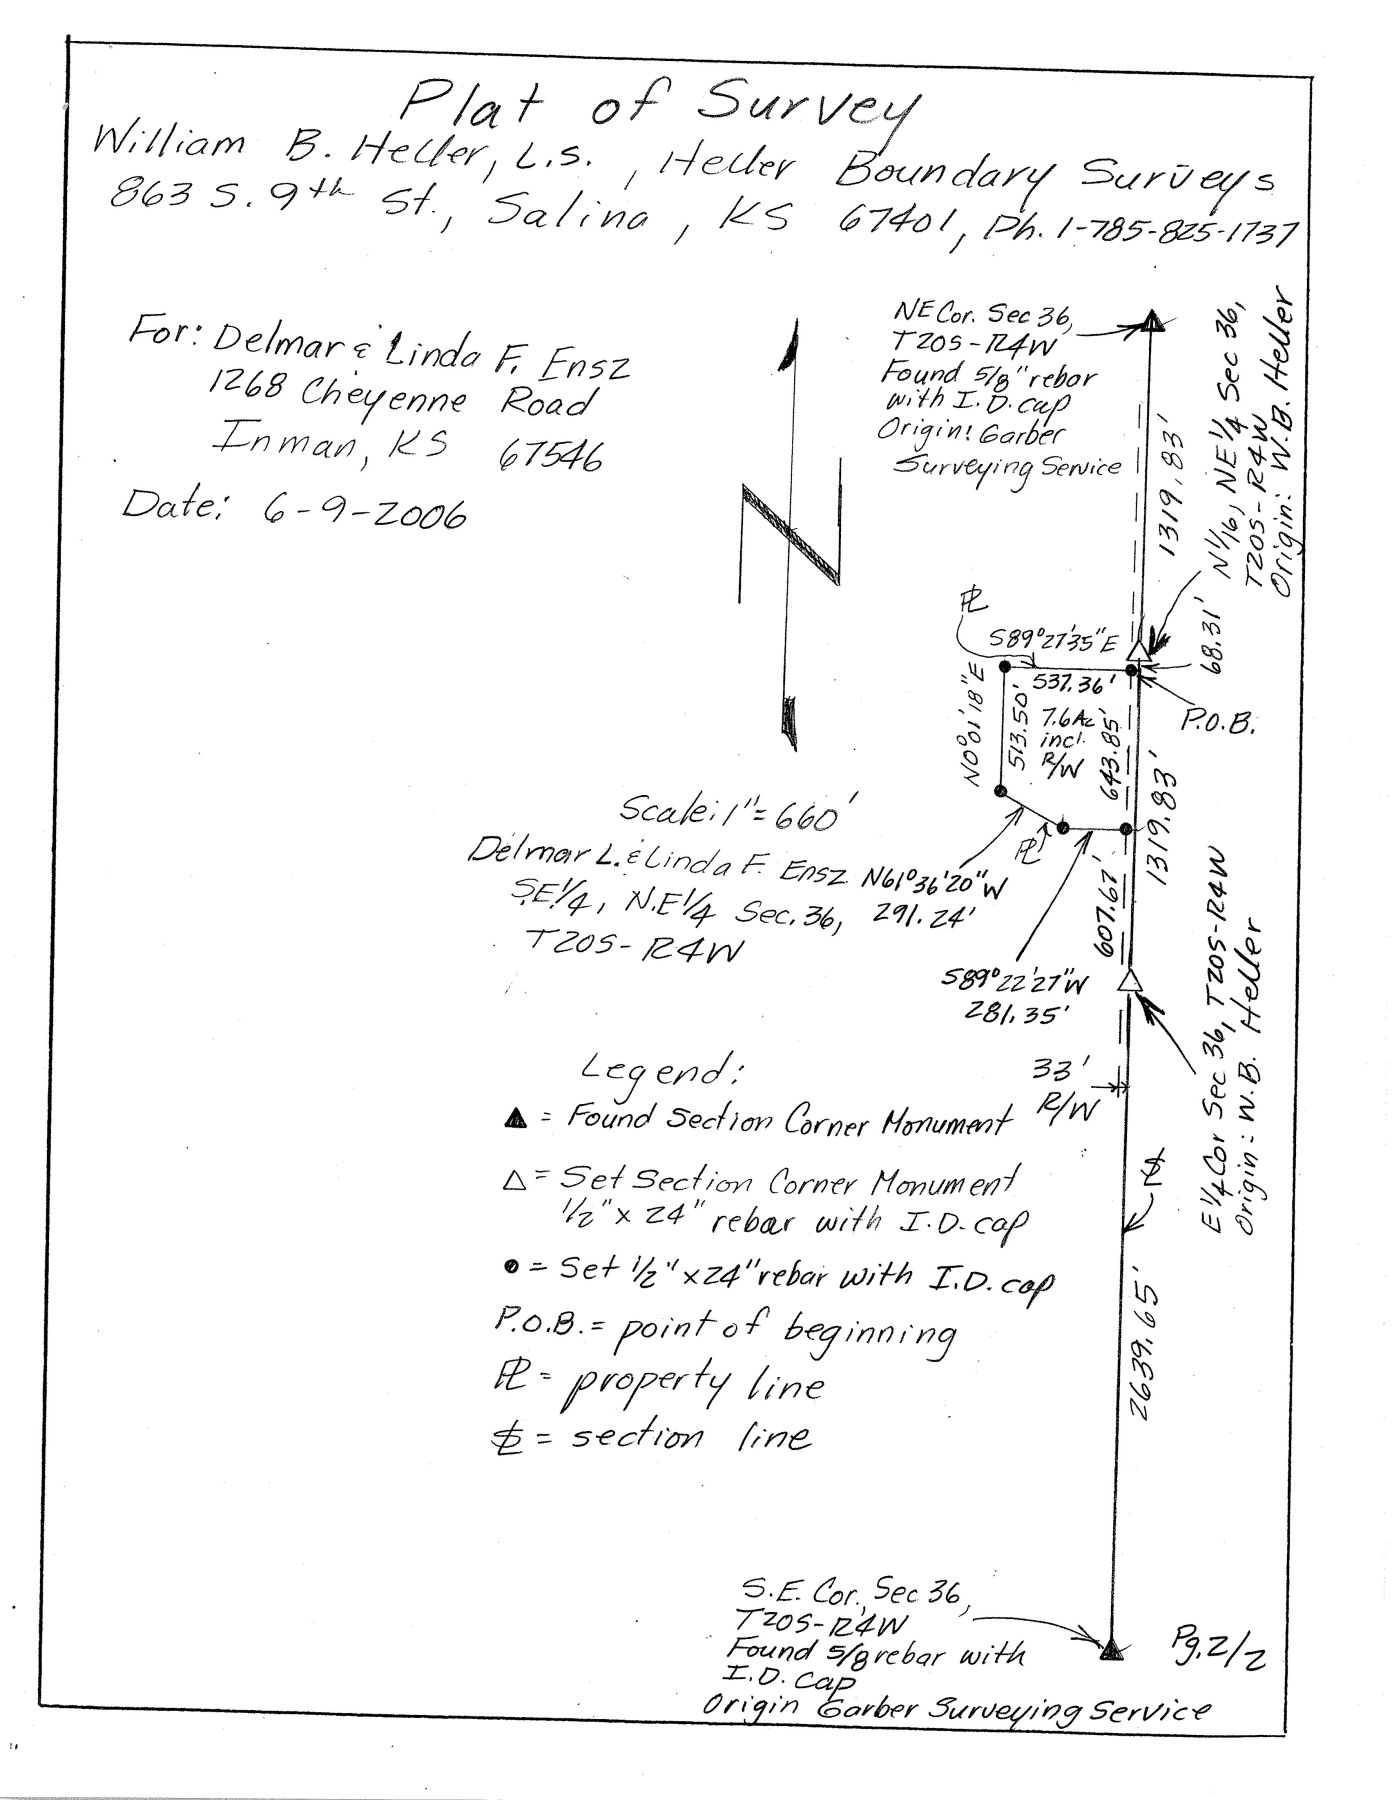 Plat of Survey
William B. Heller, L.S., Heller Boundary Surveys
863 S. 9th St., Salina, KS 67401, Ph. 1-785-825-1737
For: Delmar & Linda F. Ensz
1268 Cheyenne Road
Inman, KS 67546
Date: 6-9-2006
NE Cor. Sec 36,
T20S-R4W
Found 5/8" rebar
with I.D. cap
Origin: Garber
Surveying Service
1319.83'
N 1/16, NE 1/4 Sec 36,
T20S-R4W
Origin: W.B. Heller
N
PL
S89°27'35"E
537.36'
68.31'
P.O.B.
N0°01'18"E
513.50'
7.6Ac
incl.
R/W
643.85'
1319.83'
PL
Scale: 1"=660'
Delmar L. & Linda F. Ensz
SE1/4, N.E1/4 Sec. 36,
T20S-R4W
N61°36'20"W
291.24'
607.67'
S89°22'27"W
281.35'
E 1/4 Cor Sec 36, T20S-R4W
Origin: W.B. Heller
33'
R/W
Legend:
▲ = Found Section Corner Monument
△ = Set Section Corner Monument
1/2" x 24" rebar with I.D. cap
● = Set 1/2" x 24" rebar with I.D. cap
P.O.B. = point of beginning
PL = property line
SL = section line
SL
2639.65'
S.E. Cor., Sec 36,
T20S-R4W
Found 5/8 rebar with
I.D. Cap
Origin Garber Surveying Service
Pg. 2/2